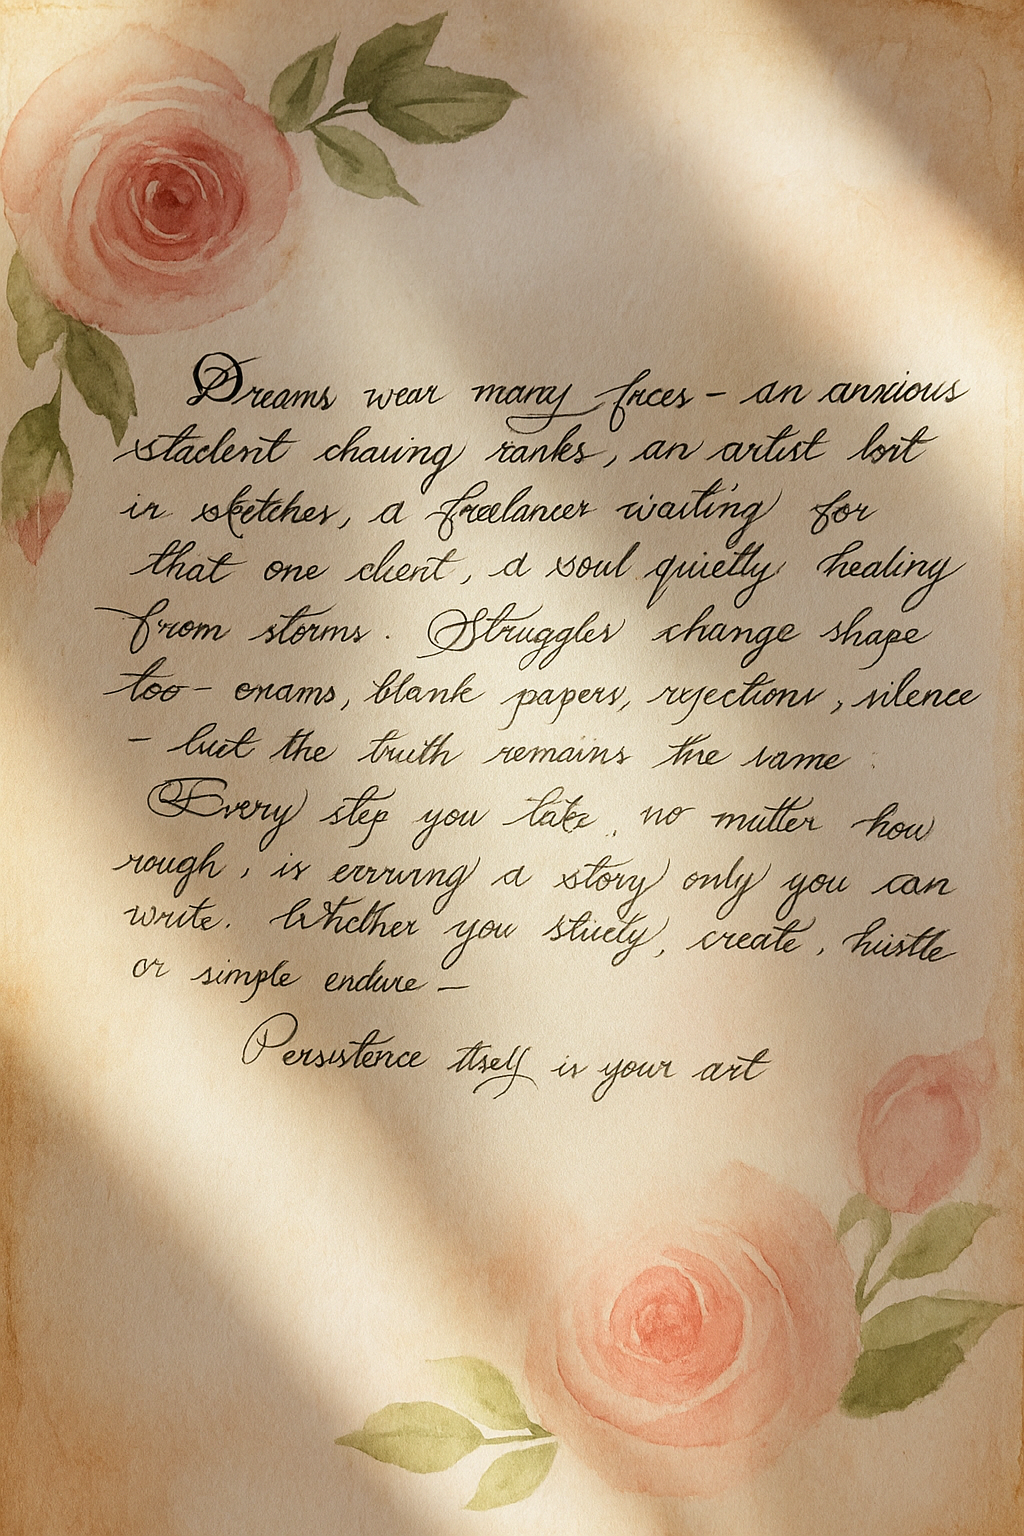 Dreams wear many faces – an anxious
student chasing ranks, an artist lost
in sketches, a freelancer waiting for
that one client, a soul quietly healing
from storms. Struggles change shape
too – exams, blank papers, rejections, silence
– but the truth remains the same
Every step you take, no matter how
rough, is a story only you can
write. Whether you study, create, hustle
or simple endure –
Persistence itself is your art